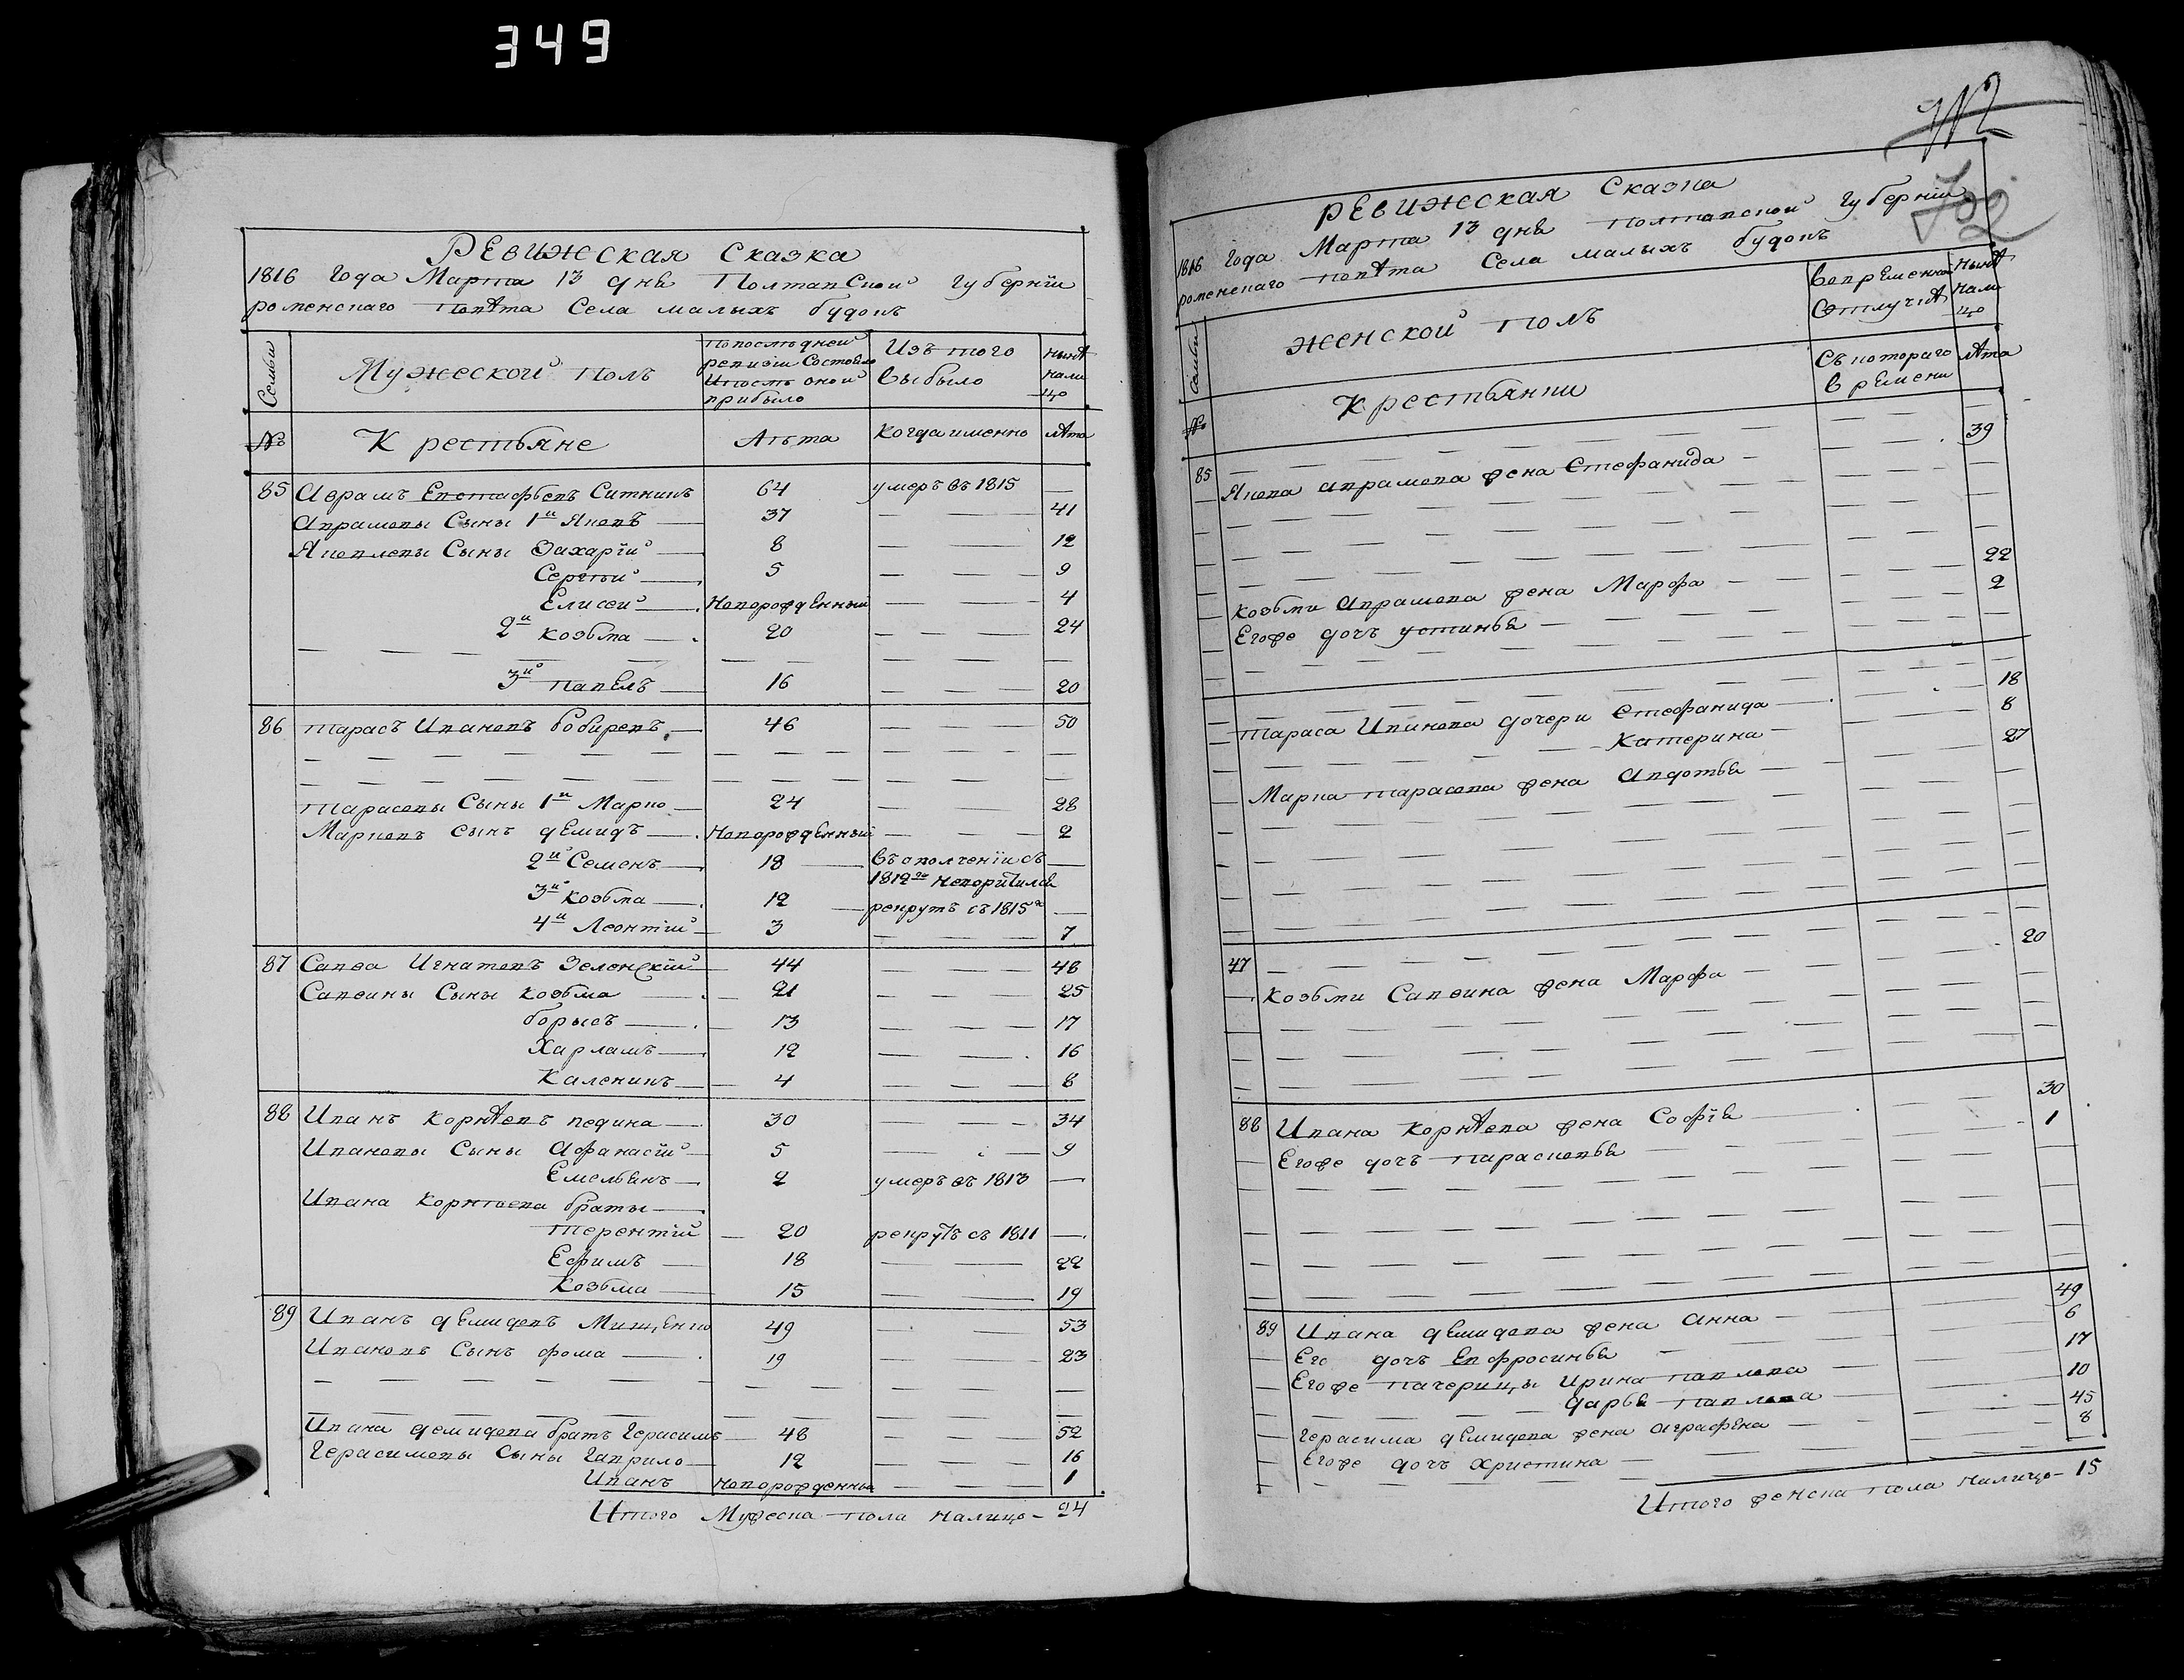 349
РЕВИЖСКАЯ Сказка
1816 Года Марта 13 дня Полтавской Губернїи
роменскаго повѣта Села малыхъ будокъ
Семьи Мужеской полъ Попослѣдней ревизіи Состояло Ипослѣ оной прибыло Изъ того выбыло нынѣ нали цо
№ Крестьяне Лѣта Когда именно лѣта
85 Аврамъ Евстафьевъ Ситникъ 64 умеръ въ 1815 —
Аврамовы Сыны 1й Яковъ — 37 — — 41
Яковлевы Сыны Захарїй — 8 — — 12
Сергѣй — 5 — — 9
Елисей — Новорожденный — — 4
2й Козьма — 20 — — 24
— — — — — — — —
3й Павелъ — 16 — — 20
86 Тарасъ Ивановъ Бобиревъ — 46 — — 50
— — — — — — — —
— — — — — — — —
Тарасовы Сыны 1й Марко — 24 — — 28
Марковъ Сынъ Демидъ — Новорожденный — — 2
2й Семенъ — 18 — въ ополченїи съ —
1812го неворитился
3й Козьма — 12 — рекрутъ съ 1815го —
4й Леонтїй — 3 — — 7
87 Савва Игнатовъ Зеленскїй 44 — — 48
Саввины Сыны Козьма — 21 — — 25
Борысъ — 13 — — 17
Харламъ — 12 — — 16
Каленикъ — 4 — — 8
88 Иванъ Корнѣевъ педина — 30 — — 34
Ивановы Сыны Афанасїй — 5 — — 9
Емельянъ — 2 умеръ въ 1813 —
Ивана Корнѣева браты —
Терентїй — 20 рекрутъ съ 1811 —
Ефимъ — 18 — — 22
Козьма — 15 — — 19
89 Иванъ Демидовъ Мищенко 49 — — 53
Ивановъ Сынъ Фома — 19 — — 23
— — — — — — — —
— — — — — — — —
Ивана Демидова братъ Герасимъ — 48 — — 52
Герасимовы Сыны Гаврило — 12 — — 16
Иванъ новорожденны — — 1
Итого Мужеска пола налицо — 24
732
РЕВИЖСКАЯ Сказка
1816 Года Марта 13 дня Полтавской Губернїи
роменскаго повѣта Села малыхъ будокъ
Семьи женской полъ Вовременной Отлучкѣ нынѣ нали цо
№ Крестьянки Съкотораго времени лѣта
85 — — — — — —
— Якова Аврамова жена Стефанида — — 39
— — — — — —
— — — — — —
— — — — — —
— Козьми Аврамова жена Марфа — — 22
— Егоже дочъ Устинья — — 2
— — — — — —
— — — — — —
— Тараса Иванова дочери Стефанида — — 18
— — — Катерина — — 8
— Марка Тарасова жена Авдотья — — 27
— — — — — —
— — — — — —
— — — — — —
— — — — — —
47 — — — — — —
— Козьми Саввина жена Марфа — — 20
— — — — — —
— — — — — —
— — — — — —
88 Ивана Корнѣева жена Софїя — — 30
— Егоже дочъ Парасковья — — 1
— — — — — —
— — — — — —
— — — — — —
— — — — — —
89 Ивана Демидова жена Анна — — 49
— Его дочъ Евфросинья — — 6
— Егоже пачерицы Ирина Павлова — 17
— — — Дарья Павлова — — 10
— Герасима Демидова жена Аграфена — — 45
— Егоже дочъ Христина — — 8
— — — — — —
Итого женска пола налицо — 15